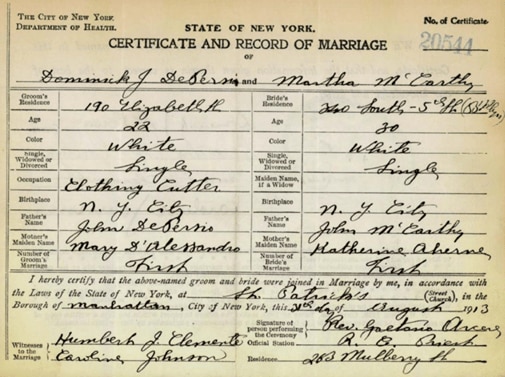 THE CITY OF NEW YORK.
DEPARTMENT OF HEALTH.
STATE OF NEW YORK.
No. of Certificate
20544
CERTIFICATE AND RECORD OF MARRIAGE
OF
Dominick J DePersio and Martha McCarthy
Groom's Residence 190 Elizabeth St Bride's Residence 240 South - 5th St
Age 22 Age 20
Color White Color White
Single, Widowed or Divorced Single Single, Widowed or Divorced Single
Occupation Clothing Cutter Maiden Name, if a Widow
Birthplace N. Y. City Birthplace N. Y. City
Father's Name John DePersio Father's Name John McCarthy
Mother's Maiden Name Mary D'Alessandro Mother's Maiden Name Katherine Aherne
Number of Groom's Marriage First Number of Bride's Marriage First
I hereby certify that the above-named groom and bride were joined in Marriage by me, in accordance with
the Laws of the State of New York, at St. Patrick's (Street Church), in the
Borough of Manhattan, City of New York, this of August 1913
Signature of person performing the Ceremony Rev. Gaetano Arcese
Witnesses to the Marriage Humbert J. Clemente Official Station R. C. Priest
Caroline Johnson Residence, 263 Mulberry St